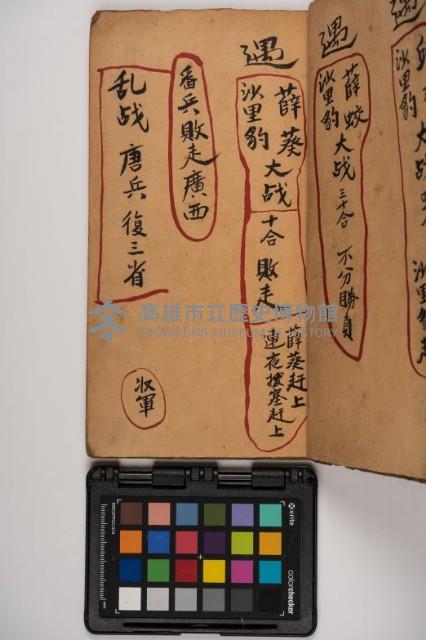 遇
薛蛟 大战 三十合 不分勝負
沙里豹
遇
薛葵 大战 十合 敗走 薛葵赶上
沙里豹 連夜 拔塞赶上
番兵敗走廣西
乱战 唐兵 復三省
收軍
高雄市立歷史博物館
KAOHSIUNG MUSEUM OF HISTORY
x-rite
colorchecker